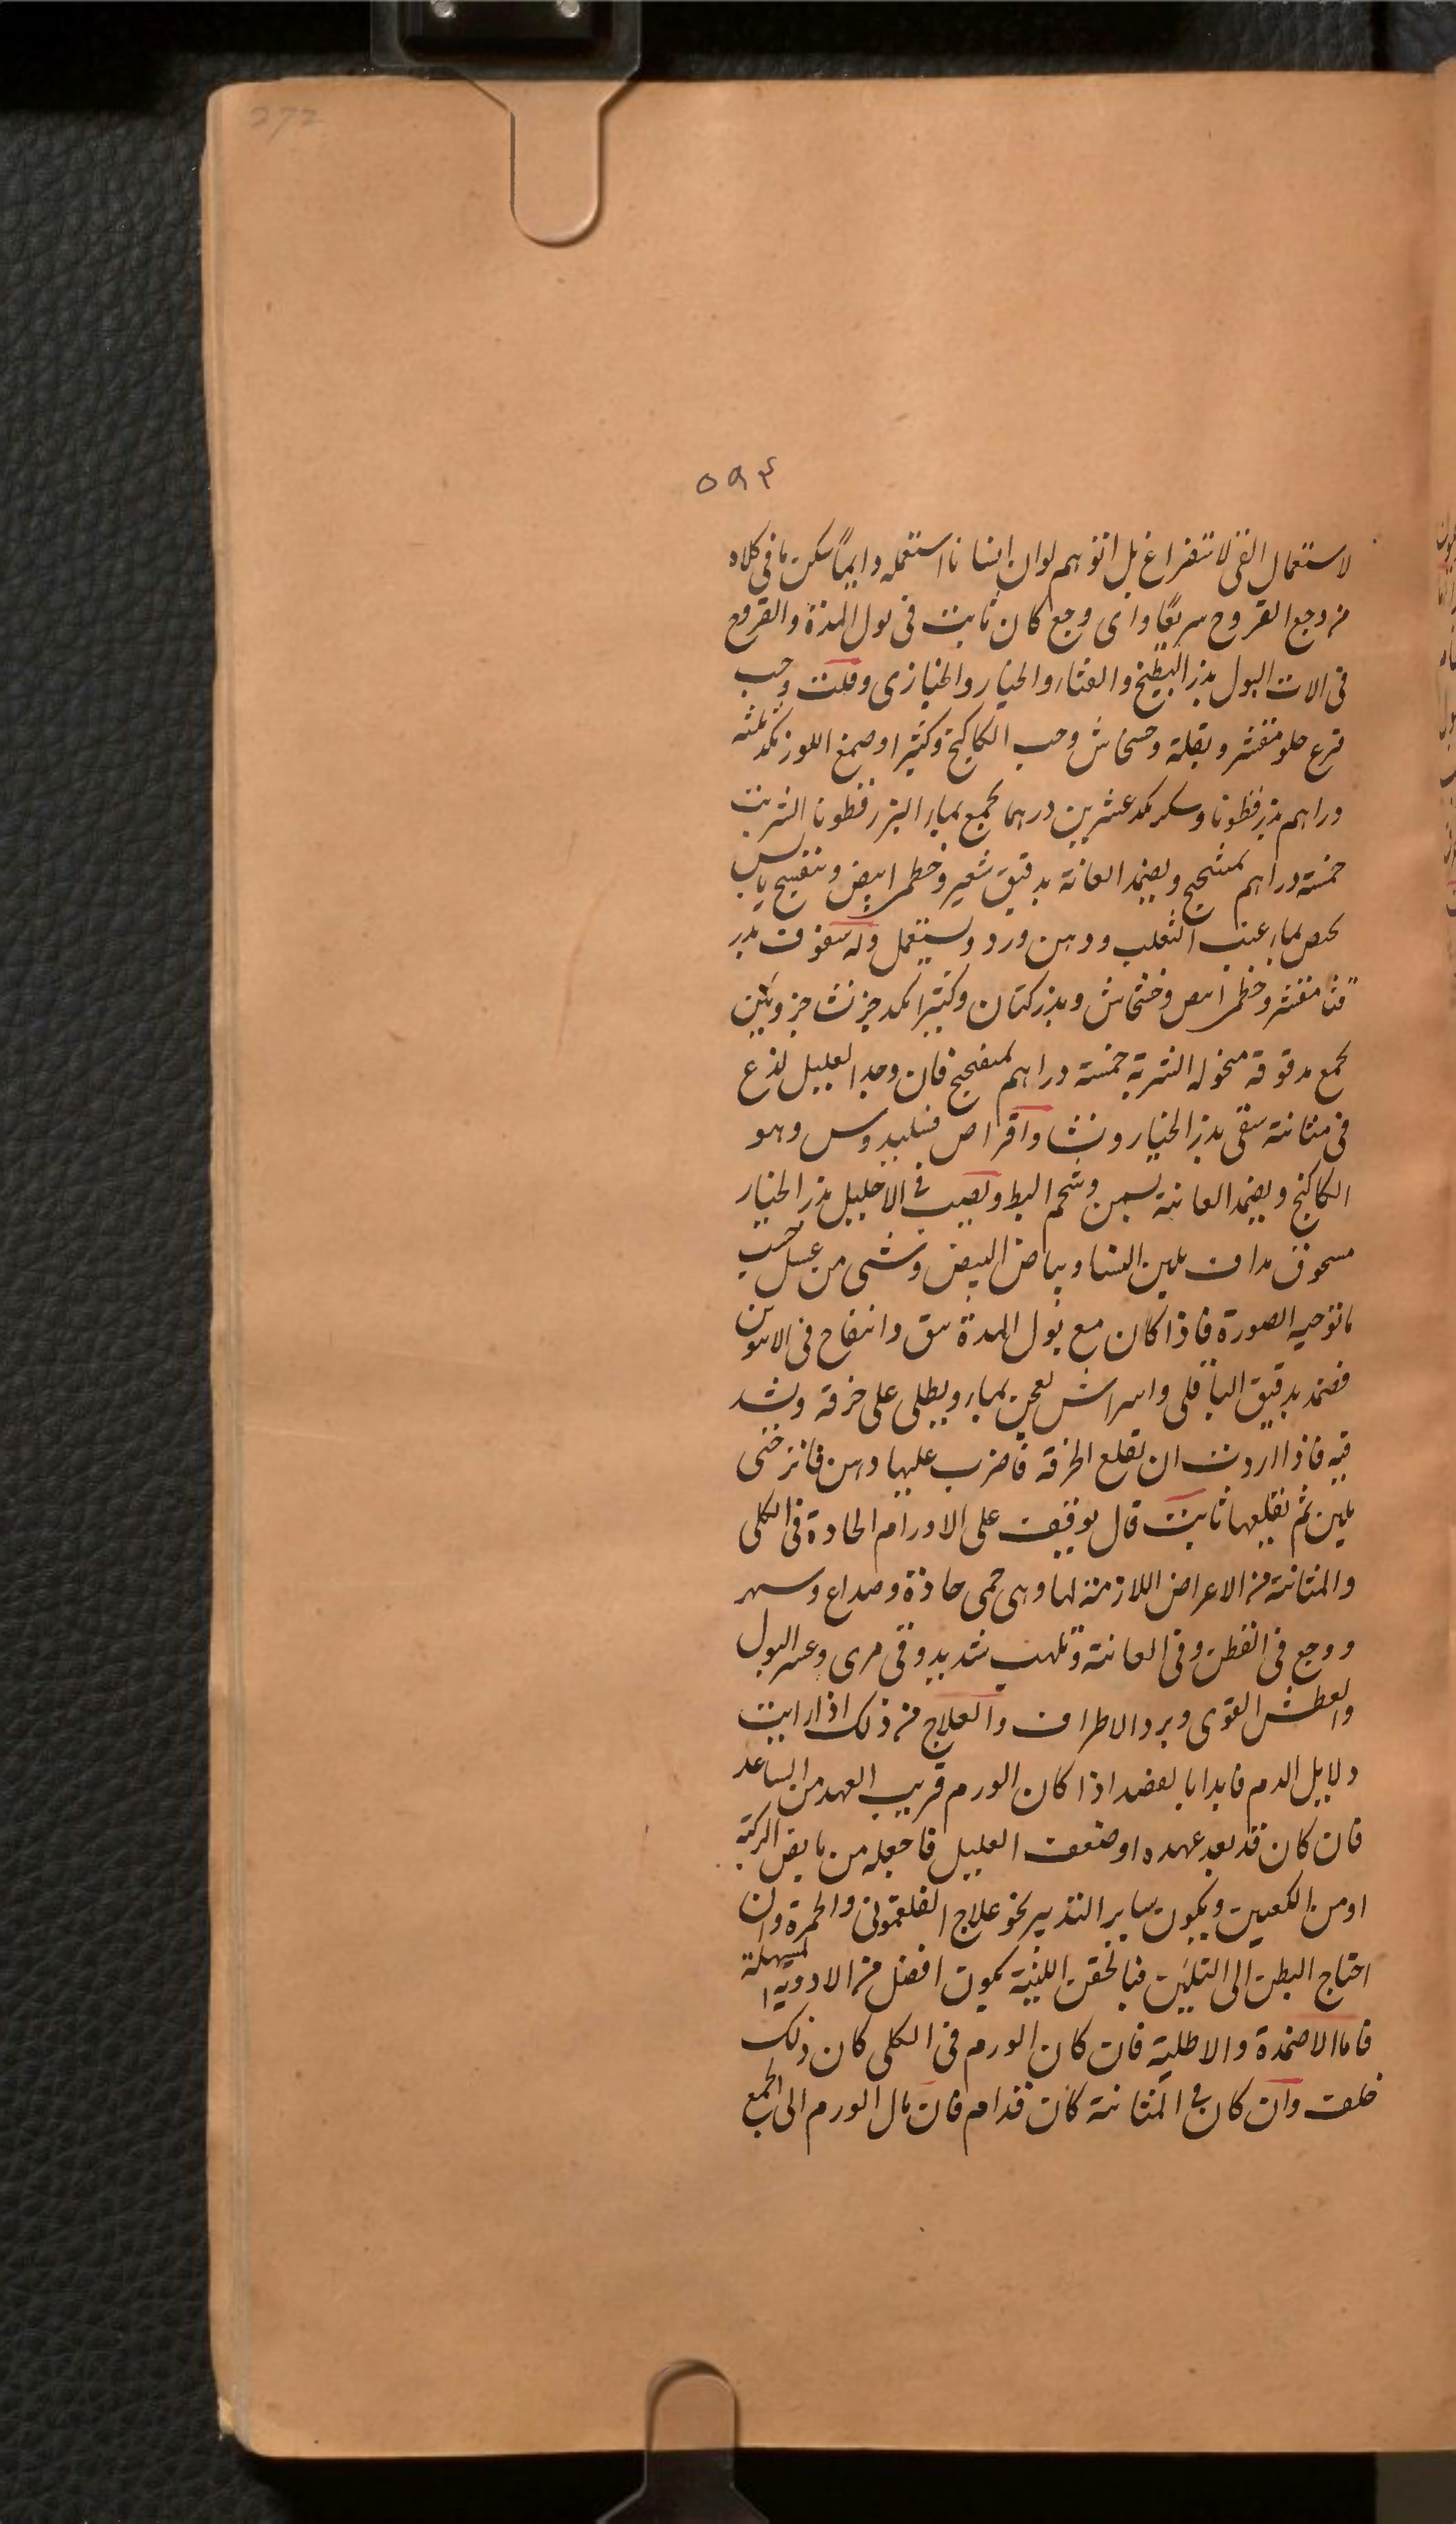 272
٥٩٤
لاستعمال القئ لاستفراغ بل اتوهم لو ان انسانا استعمله دايماً سكن ما في كلاه
من وجع القروح سريعًا واى وجع كان ثابت فى بول المدة والقروح
فى الات البول بذر البطيخ والقثار والخيار والخبازى وحب
قرع حلو مقشر وبقلة وخشخاش وحب الكاكنج وكثيرا وصمغ اللوز مكد ثلثه
دراهم بزرقطونا وسكر مكد عشرين درهما يجمع بماء البزرقطونا الشربت
خمسته دراهم ويضمد العانة بدقيق شعير وخطمى ابيض وبنفسج يابس
بماء عنب الثعلب ودهن ورد ويستعمل وله سفوف بذر
قثا مقشر وخطمى ابيض وخشخاش وبذر كتان وكثيرا مكد جز نشا جزوين
يجمع مدقوقة منخوله الشربة خمسته دراهم فان وجد العليل لذع
فى مثانته سقى بذر الخيار ونشا واقراص وهو
الكاكنج ويضمد العانة بسمن وشحم البط ويصب في الاحليل بذر الخيار
مسحوق مداف بلبن النسا وبياض البيض وشى من عسل حسب
ماتوجبه الصورة فاذا كان مع بول المدة وانتفاخ فى
فضمد بدقيق الباقلى واسراش يعجن بماء ويطلى على خرقه ويشد
فيه فاذا اردت ان تقلع الخرقه فاضرب عليها دهن فاترختى
يلين ثم تقلعها ثابت قال يوقف على الاورام الحادة فى الكلى
والمثانة من الاعراض اللازمة لها وهى حمى حادة وصداع وسهر
ووجع فى القطن وفى العانة وتلهب شديد وقى مرى وعسر البول
والعطش القوى وبرد الاطراف والعلاج من ذلك اذا رايت
دلايل الدم فابدا بالفصد اذا كان الورم قريب العهد من الساعد
فان كان قد بعد عهده او ضعف العليل فاجعله من مابض الركبة
او من الكعبين ويكون ساير التدبير نحو علاج الفلغمونى والحمرة وان
احتاج البطن الى التليين فبالحقن اللينة يكون افضل من الادوية المسهلة
فاما الاضمدة والاطلية فان كان الورم فى الكلى كان ذلك
خلف وان كان في المثانة كان قدام فان مال الورم الى الجمع